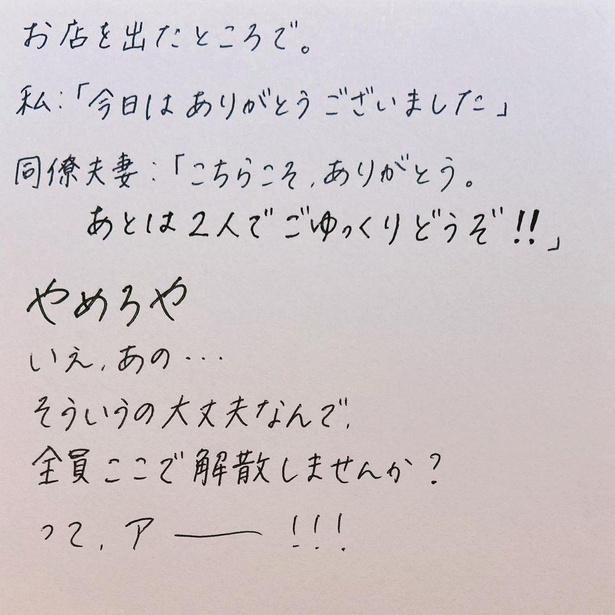 お店を出たところで。
私:「今日は ありがとうございました」
同僚夫妻:「こちらこそ、ありがとう。
あとは2人で ごゆっくりどうぞ!!」
やめろや
いえ、あの・・・
そういうの大丈夫なんで、
全員ここで解散しませんか?
って、アー!!!